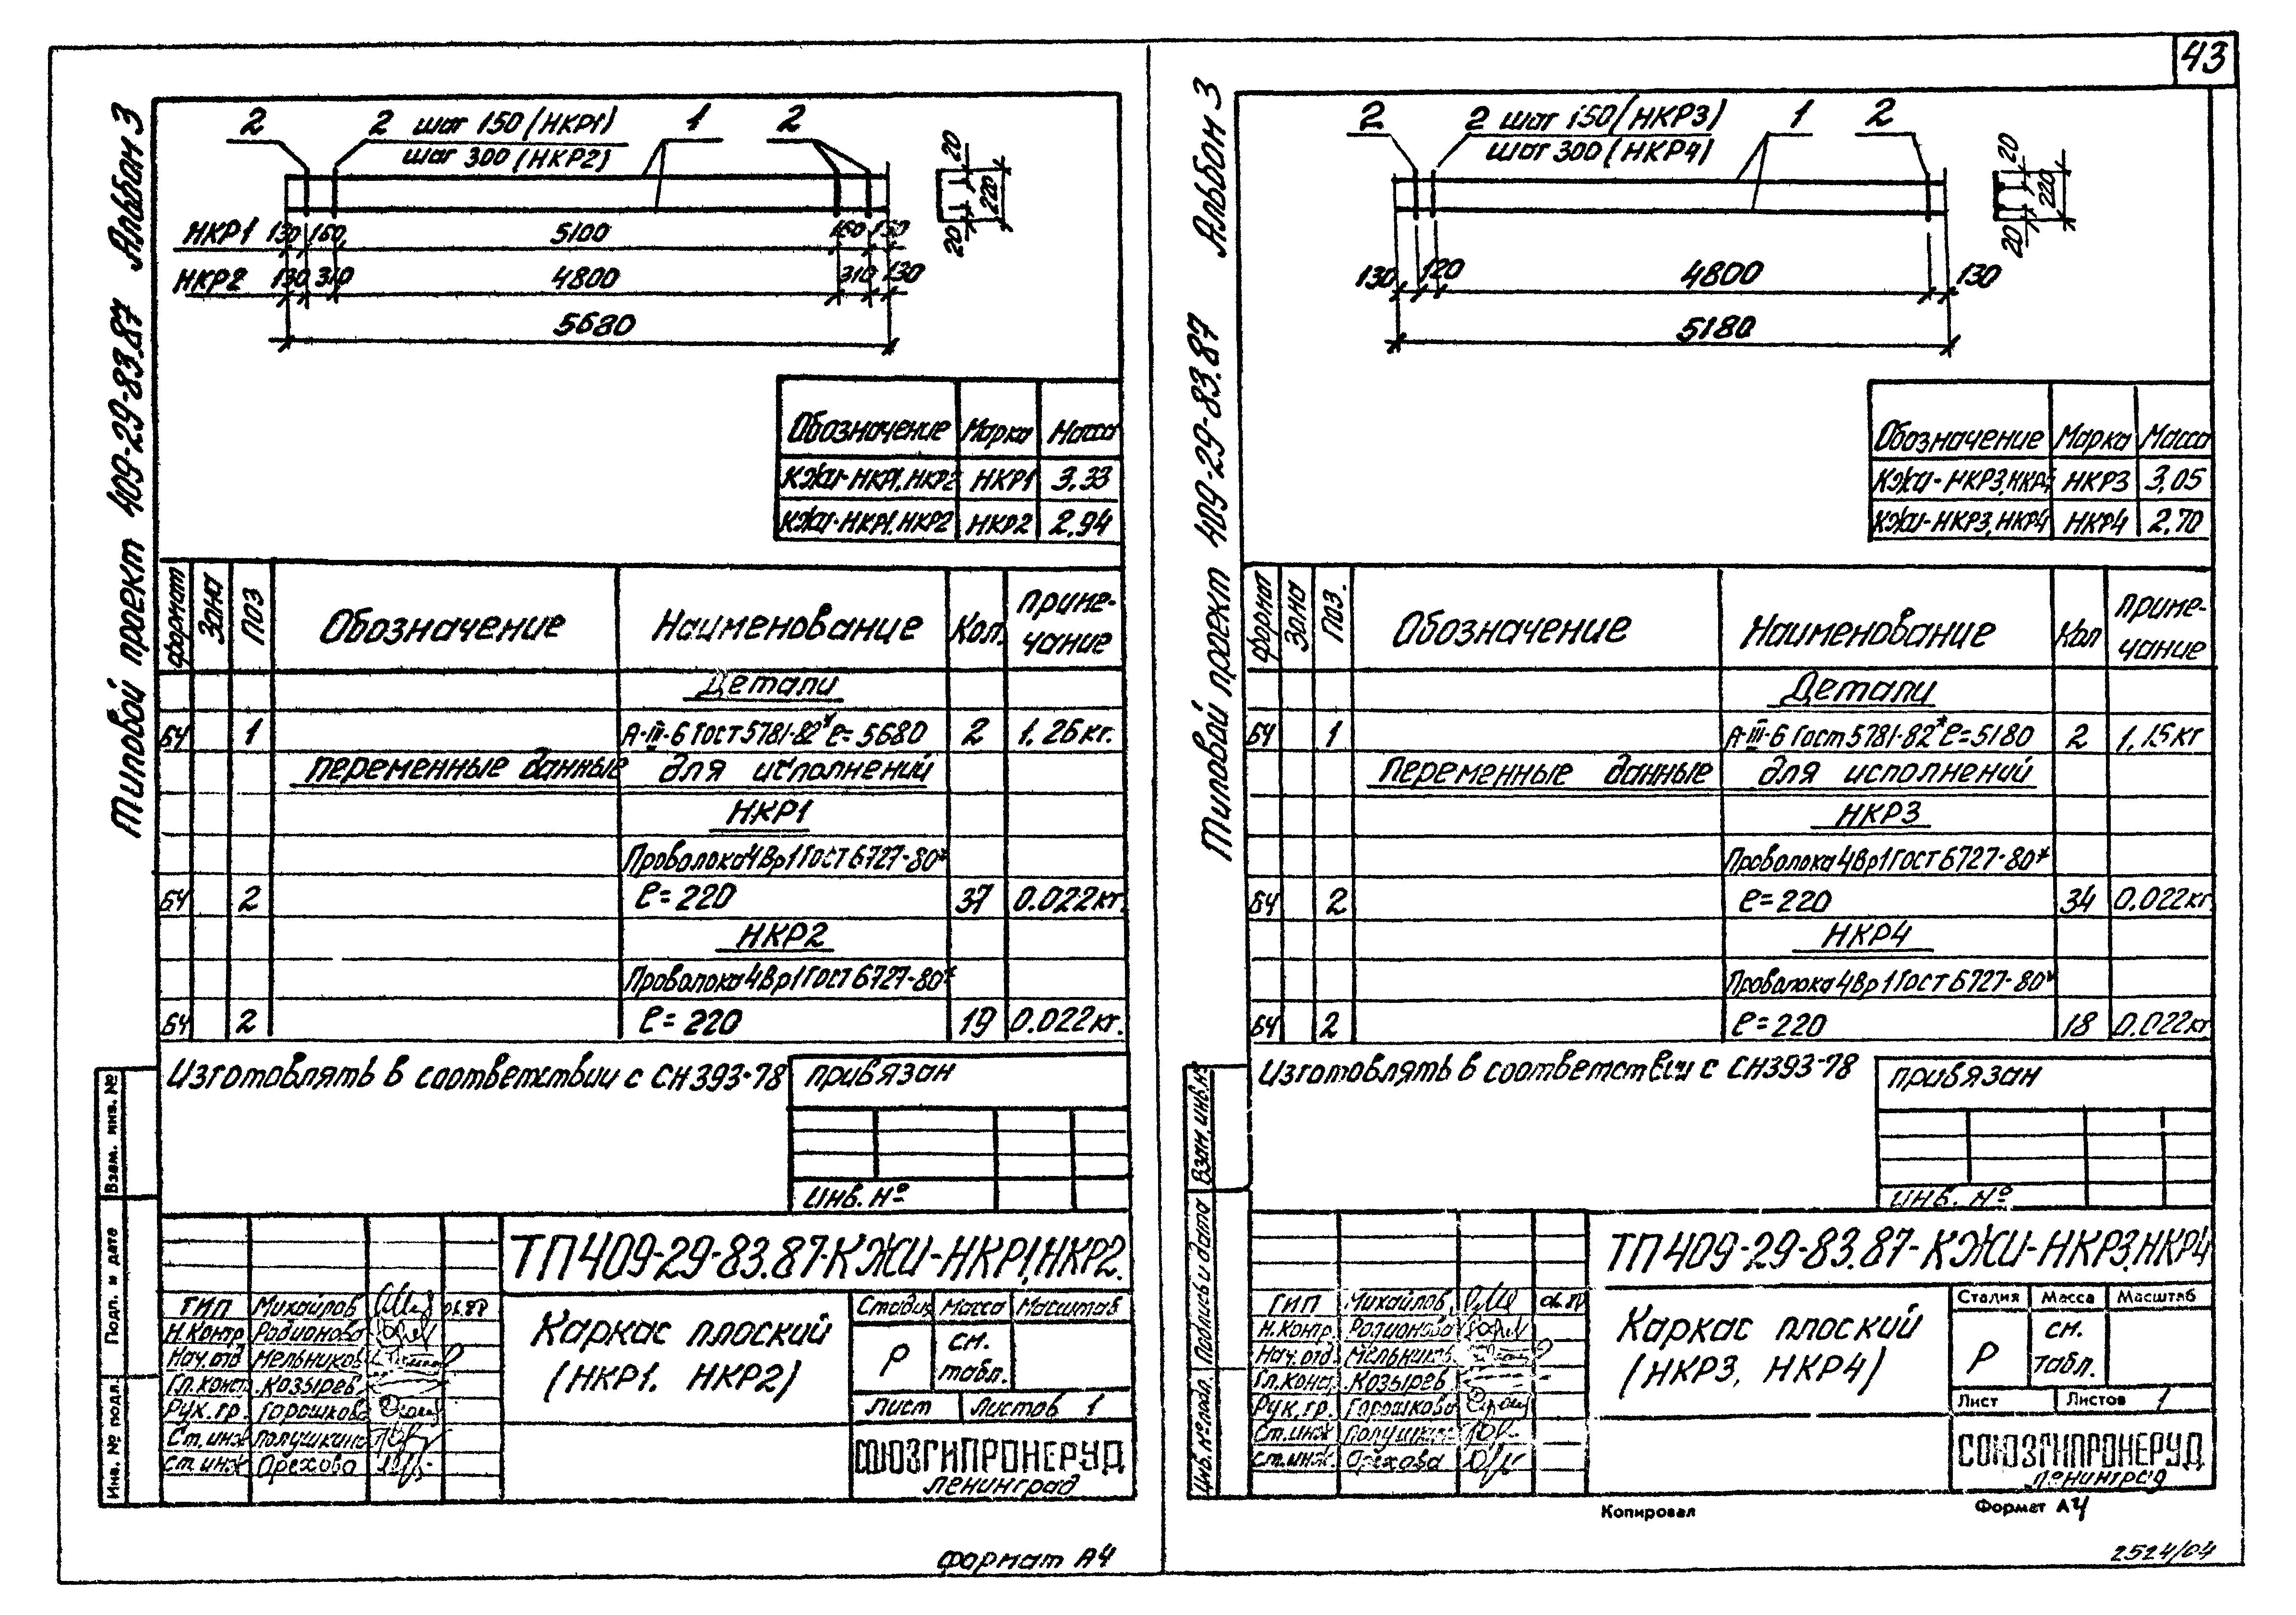 43
Альбом 3
Типовой проект 409-29-83.87
2
2 шаг 150 (НКР1)
шаг 300 (НКР2)
1
2
20
220
20
НКР1 130 160 5100 160 130
НКР2 130 310 4800 310 130
5680
Обозначение Марка Масса
КЖИ-НКР1, НКР2 НКР1 3,33
КЖИ-НКР1, НКР2 НКР2 2,94
формат Зона Поз Обозначение Наименование Кол. Приме-
чание
Детали
БЧ 1 А-III-6 Гост 5781-82* ℓ=5680 2 1.26кг.
переменные данные для исполнений
НКР1
Проволока 4Вр1 Гост 6727-80*
БЧ 2 ℓ=220 37 0.022кг.
НКР2
Проволока 4Вр1 Гост 6727-80*
БЧ 2 ℓ=220 19 0.022кг.
Изготовлять в соответствии с СН393-78
привязан
Инв. №
Взам. инв. №
Подп. и дата
Инв. № подл.
ТП409-29-83.87-КЖИ-НКР1,НКР2.
ГИП Михайлов 06.87
Н.Контр Родионова
Нач.отд Мельников
Гл.конст Козырев
Рук.гр. Горошкова
Ст.инж Полушкина
Ст.инж Орехова
Каркас плоский
(НКР1. НКР2)
Стадия Масса Масштаб
Р см.
табл.
Лист Листов 1
СОЮЗГИПРОНЕРУД
Ленинград
формат А4
Альбом 3
Типовой проект 409-29-83.87
2
2 шаг 150 (НКР3)
шаг 300 (НКР4)
1
2
20
220
20
130 120 4800 130
5180
Обозначение Марка Масса
КЖИ-НКР3, НКР4 НКР3 3,05
КЖИ-НКР3, НКР4 НКР4 2,70
формат Зона Поз. Обозначение Наименование Кол Приме-
чание
Детали
БЧ 1 А-III-6 Гост 5781-82* ℓ=5180 2 1,15кг
Переменные данные для исполнений
НКР3
Проволока 4Вр1 Гост 6727-80*
БЧ 2 ℓ=220 34 0.022кг
НКР4
Проволока 4Вр1 Гост 6727-80*
БЧ 2 ℓ=220 18 0.022кг
Изготовлять в соответствии с СН393-78
привязан
Инв. №
Взам.инв.№
Подпись и дата
Инв.№подл.
ТП409-29-83.87-КЖИ-НКР3,НКР4
ГИП Михайлов 06.87
Н.Контр. Родионова
Нач.отд Мельников
Гл.конст Козырев
Рук.гр. Горошкова
Ст.инж Полушкина
Ст.инж. Орехова
Каркас плоский
(НКР3, НКР4)
Стадия Масса Масштаб
Р см.
табл.
Лист Листов 1
СОЮЗГИПРОНЕРУД
Ленинград
Копировал
Формат А4
2524/04